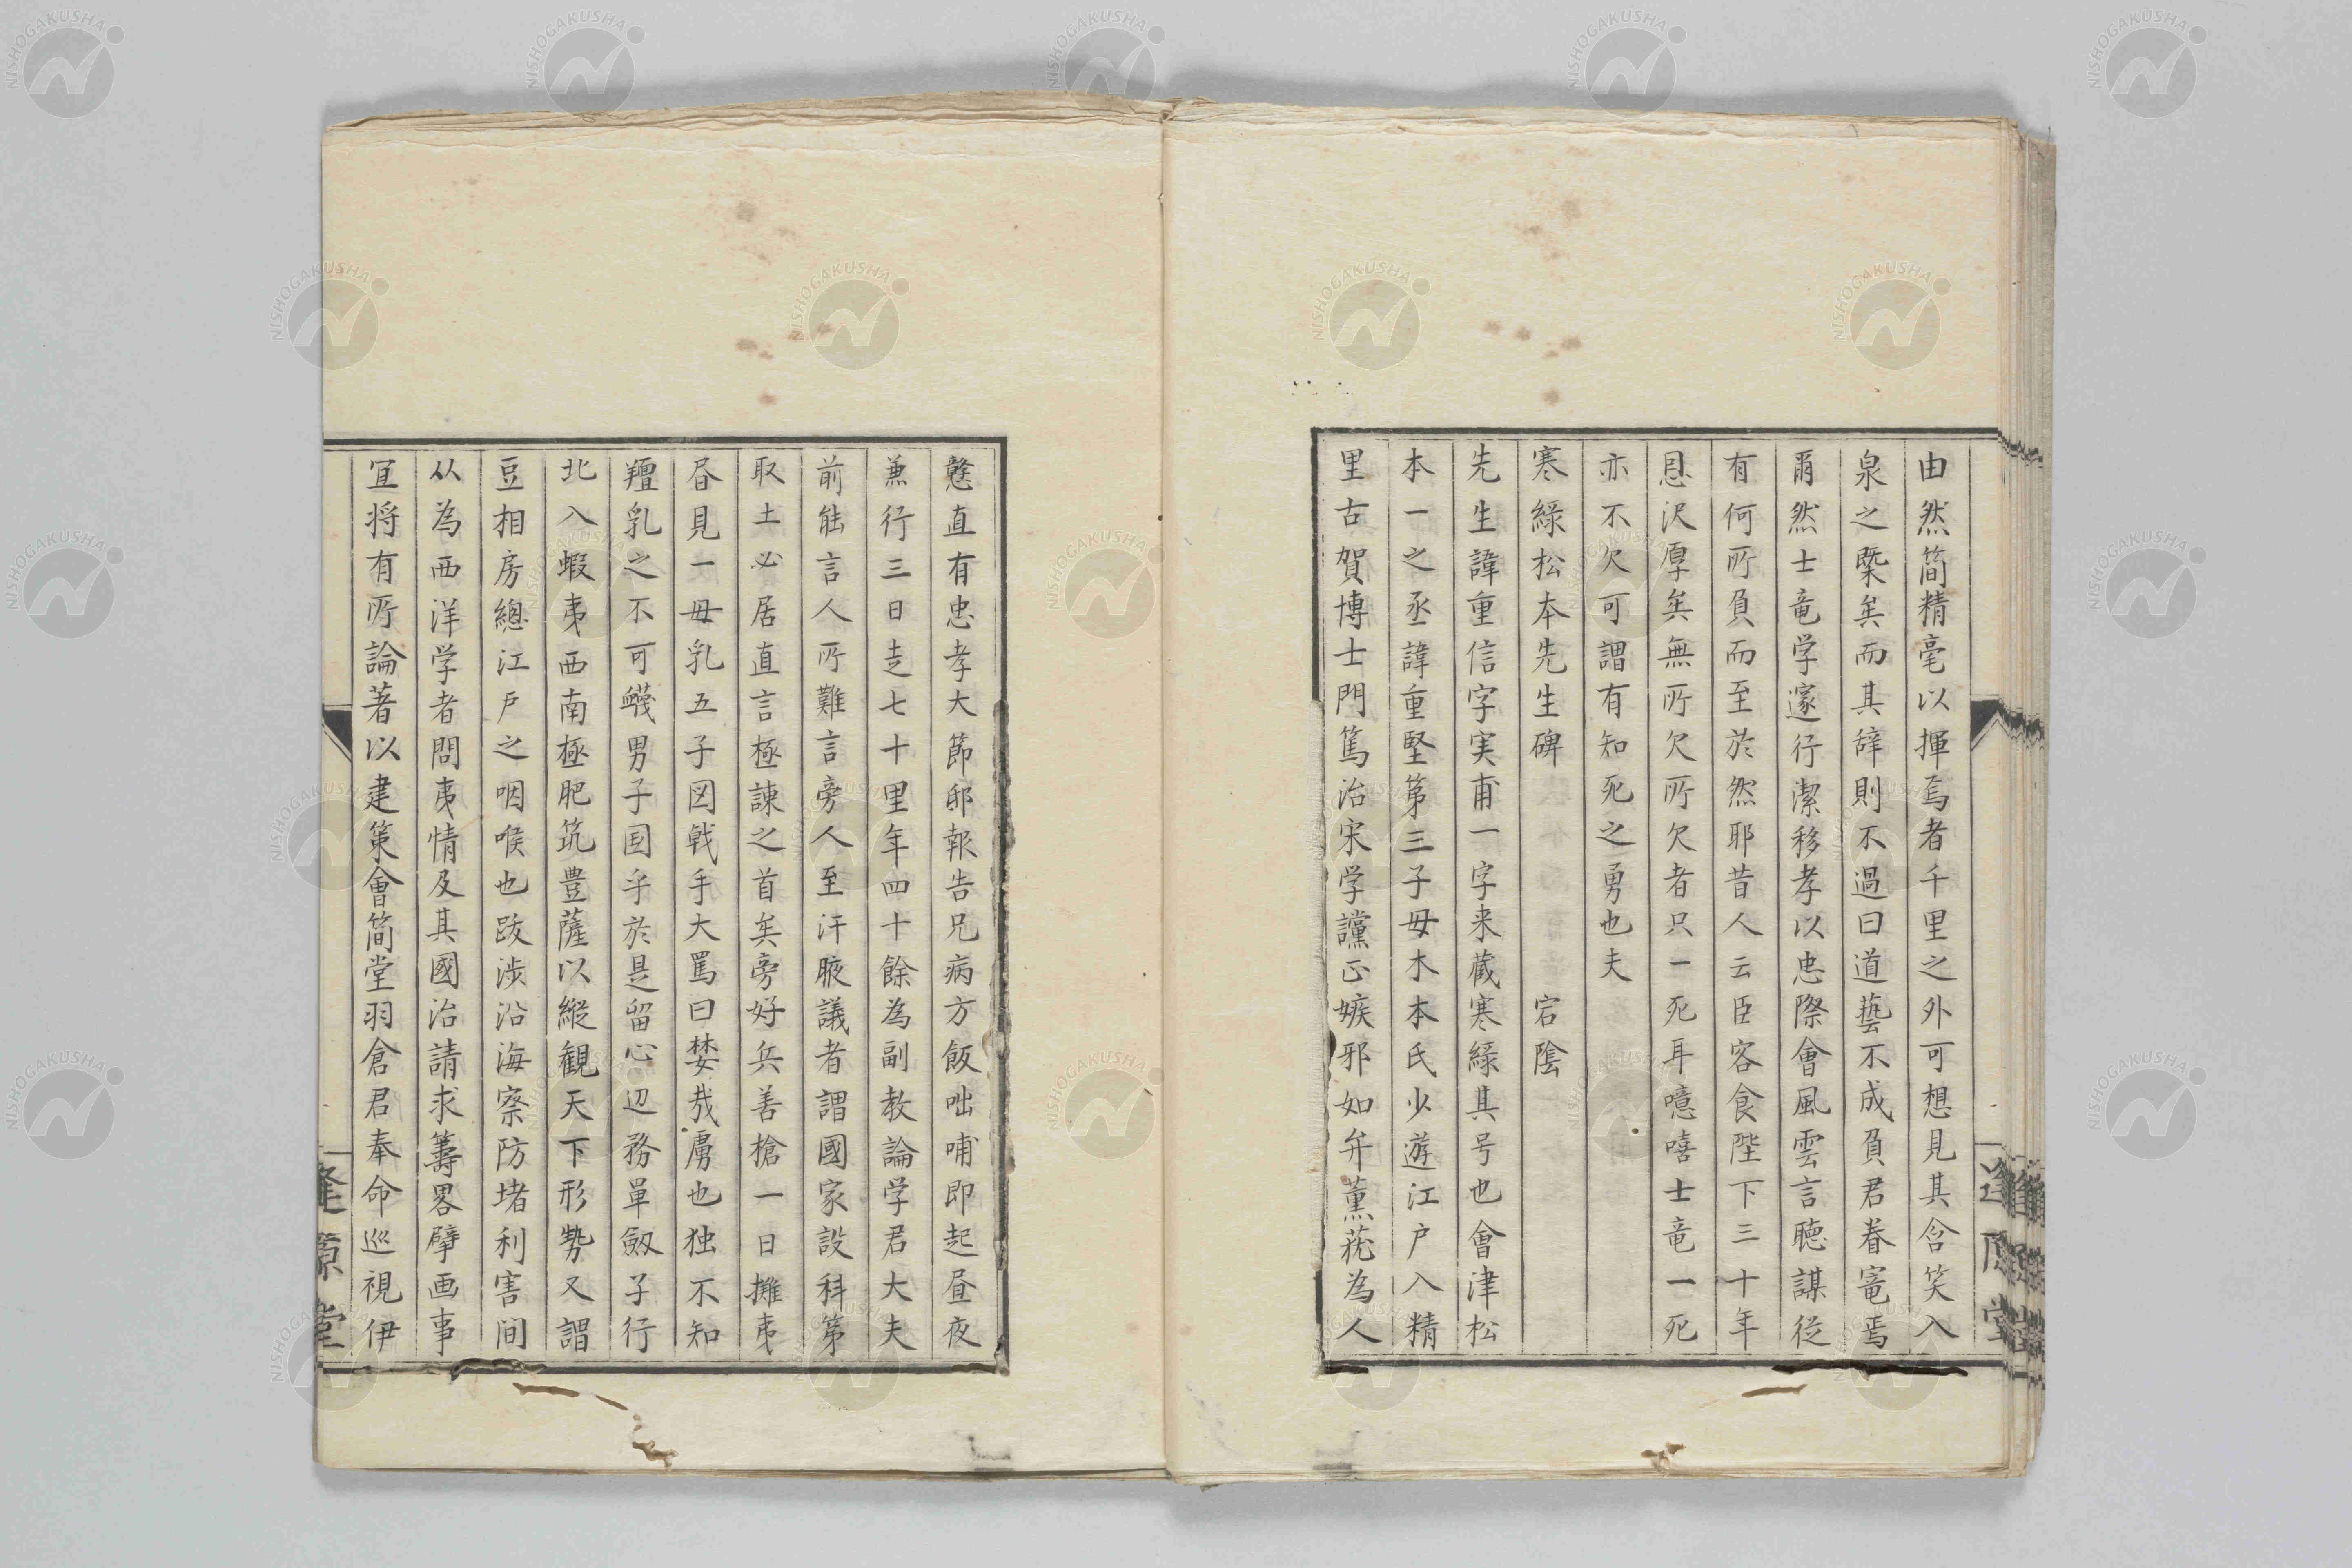 由然簡精毫以揮焉者千里之外可想見其含笑入
泉之槩矣而其辞則不過曰道藝不成負君眷寔焉
爾然士竜学邃行潔移孝以忠際會風雲言聴謀従
有何所負而至於然耶昔人云臣客食陛下三十年
恩沢厚矣無所欠所欠者只一死耳噫嘻士竜一死
亦不欠可謂有知死之勇也夫
寒緑松本先生碑 宕陰
先生諱重信字実甫一字来蔵寒緑其号也會津松
本一之丞諱重堅第三子毋木本氏少遊江戸入精
里古賀博士門篤治宋学讜正嫉邪如弁薫蕕為人
戇直有忠孝大節邸報告兄病方飯咄哺即起昼夜
兼行三日走七十里年四十餘為副教論学君大夫
前能言人所難言旁人至汗腋議者謂國家設科第
取士必居直言極諫之首矣旁好兵善槍一日攤夷
昏見一毋乳五子図戟手大罵曰婪哉虜也独不知
羶乳之不可蠛男子国乎於是留心辺務單劔子行
北入蝦夷西南極肥筑豊薩以縦観天下形勢又謂
豆相房總江戸之咽喉也跋渉沿海察防堵利害间
从為西洋学者問夷情及其國治請求籌畧擘画事
宜将有所論著以建策會簡堂羽倉君奉命巡視伊
逢原堂